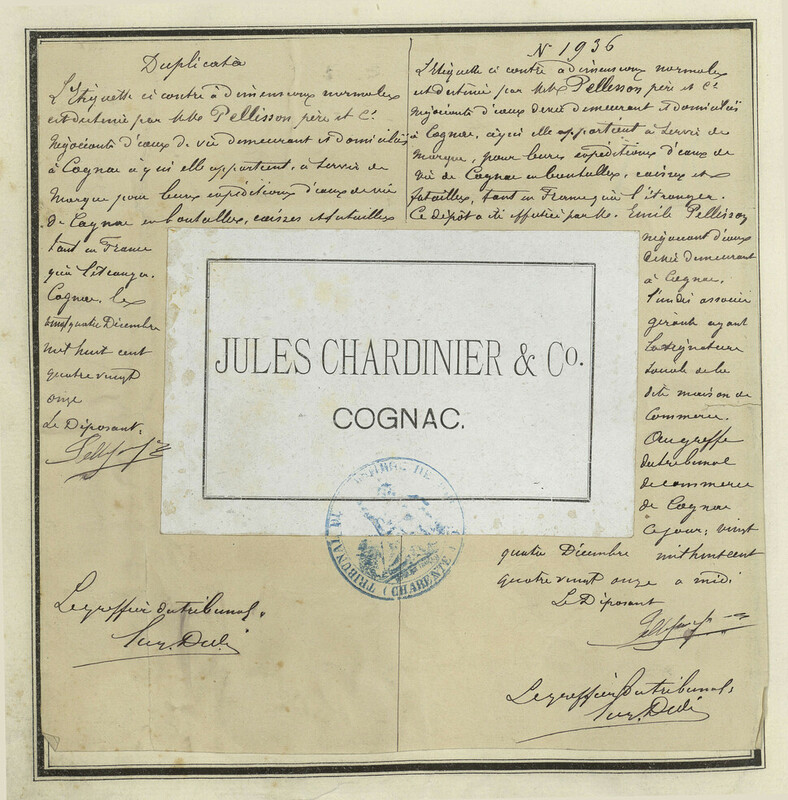 Duplicata
L'Etiquette ci contre à dimensions normales
est destinée par MMrs Pellisson père et Cie
négociants d'eaux de vie demeurant et domiciliés
à Cognac à qui elle appartient, à servir de
marque pour leurs expéditions d'eaux de vie
de Cognac en bouteilles, caisses et futailles
tant en France
qu'à l'étranger.
Cognac, le
vingt quatre Décembre
mil huit cent
quatre vingt
onze
Le Déposant,
Le greffier du tribunal,
No 1936
L'Etiquette ci contre à dimensions normales
est destinée par MMrs Pellisson père et Cie
négociants d'eaux de vie demeurant et domiciliés
à Cognac, à qui elle appartient à servir de
marque, pour leurs expéditions d'eaux de
vie de Cognac en bouteilles, caisses et
futailles, tant en France qu'à l'étranger.
Ce dépôt a été effectué par Mr. Emile Pellisson
négociant d'eaux
de vie demeurant
à Cognac,
l'un des associés
gérants ayant
la signature
sociale de la
dite maison de
Commerce.
Au greffe
du tribunal
de commerce
de Cognac
Ce jour, vingt
quatre Décembre mil huit cent
quatre vingt onze à midi
Le Déposant
Le greffier du tribunal,
JULES CHARDINIER & Co.
COGNAC.
TRIBUNAL DE
(CHARENTE)